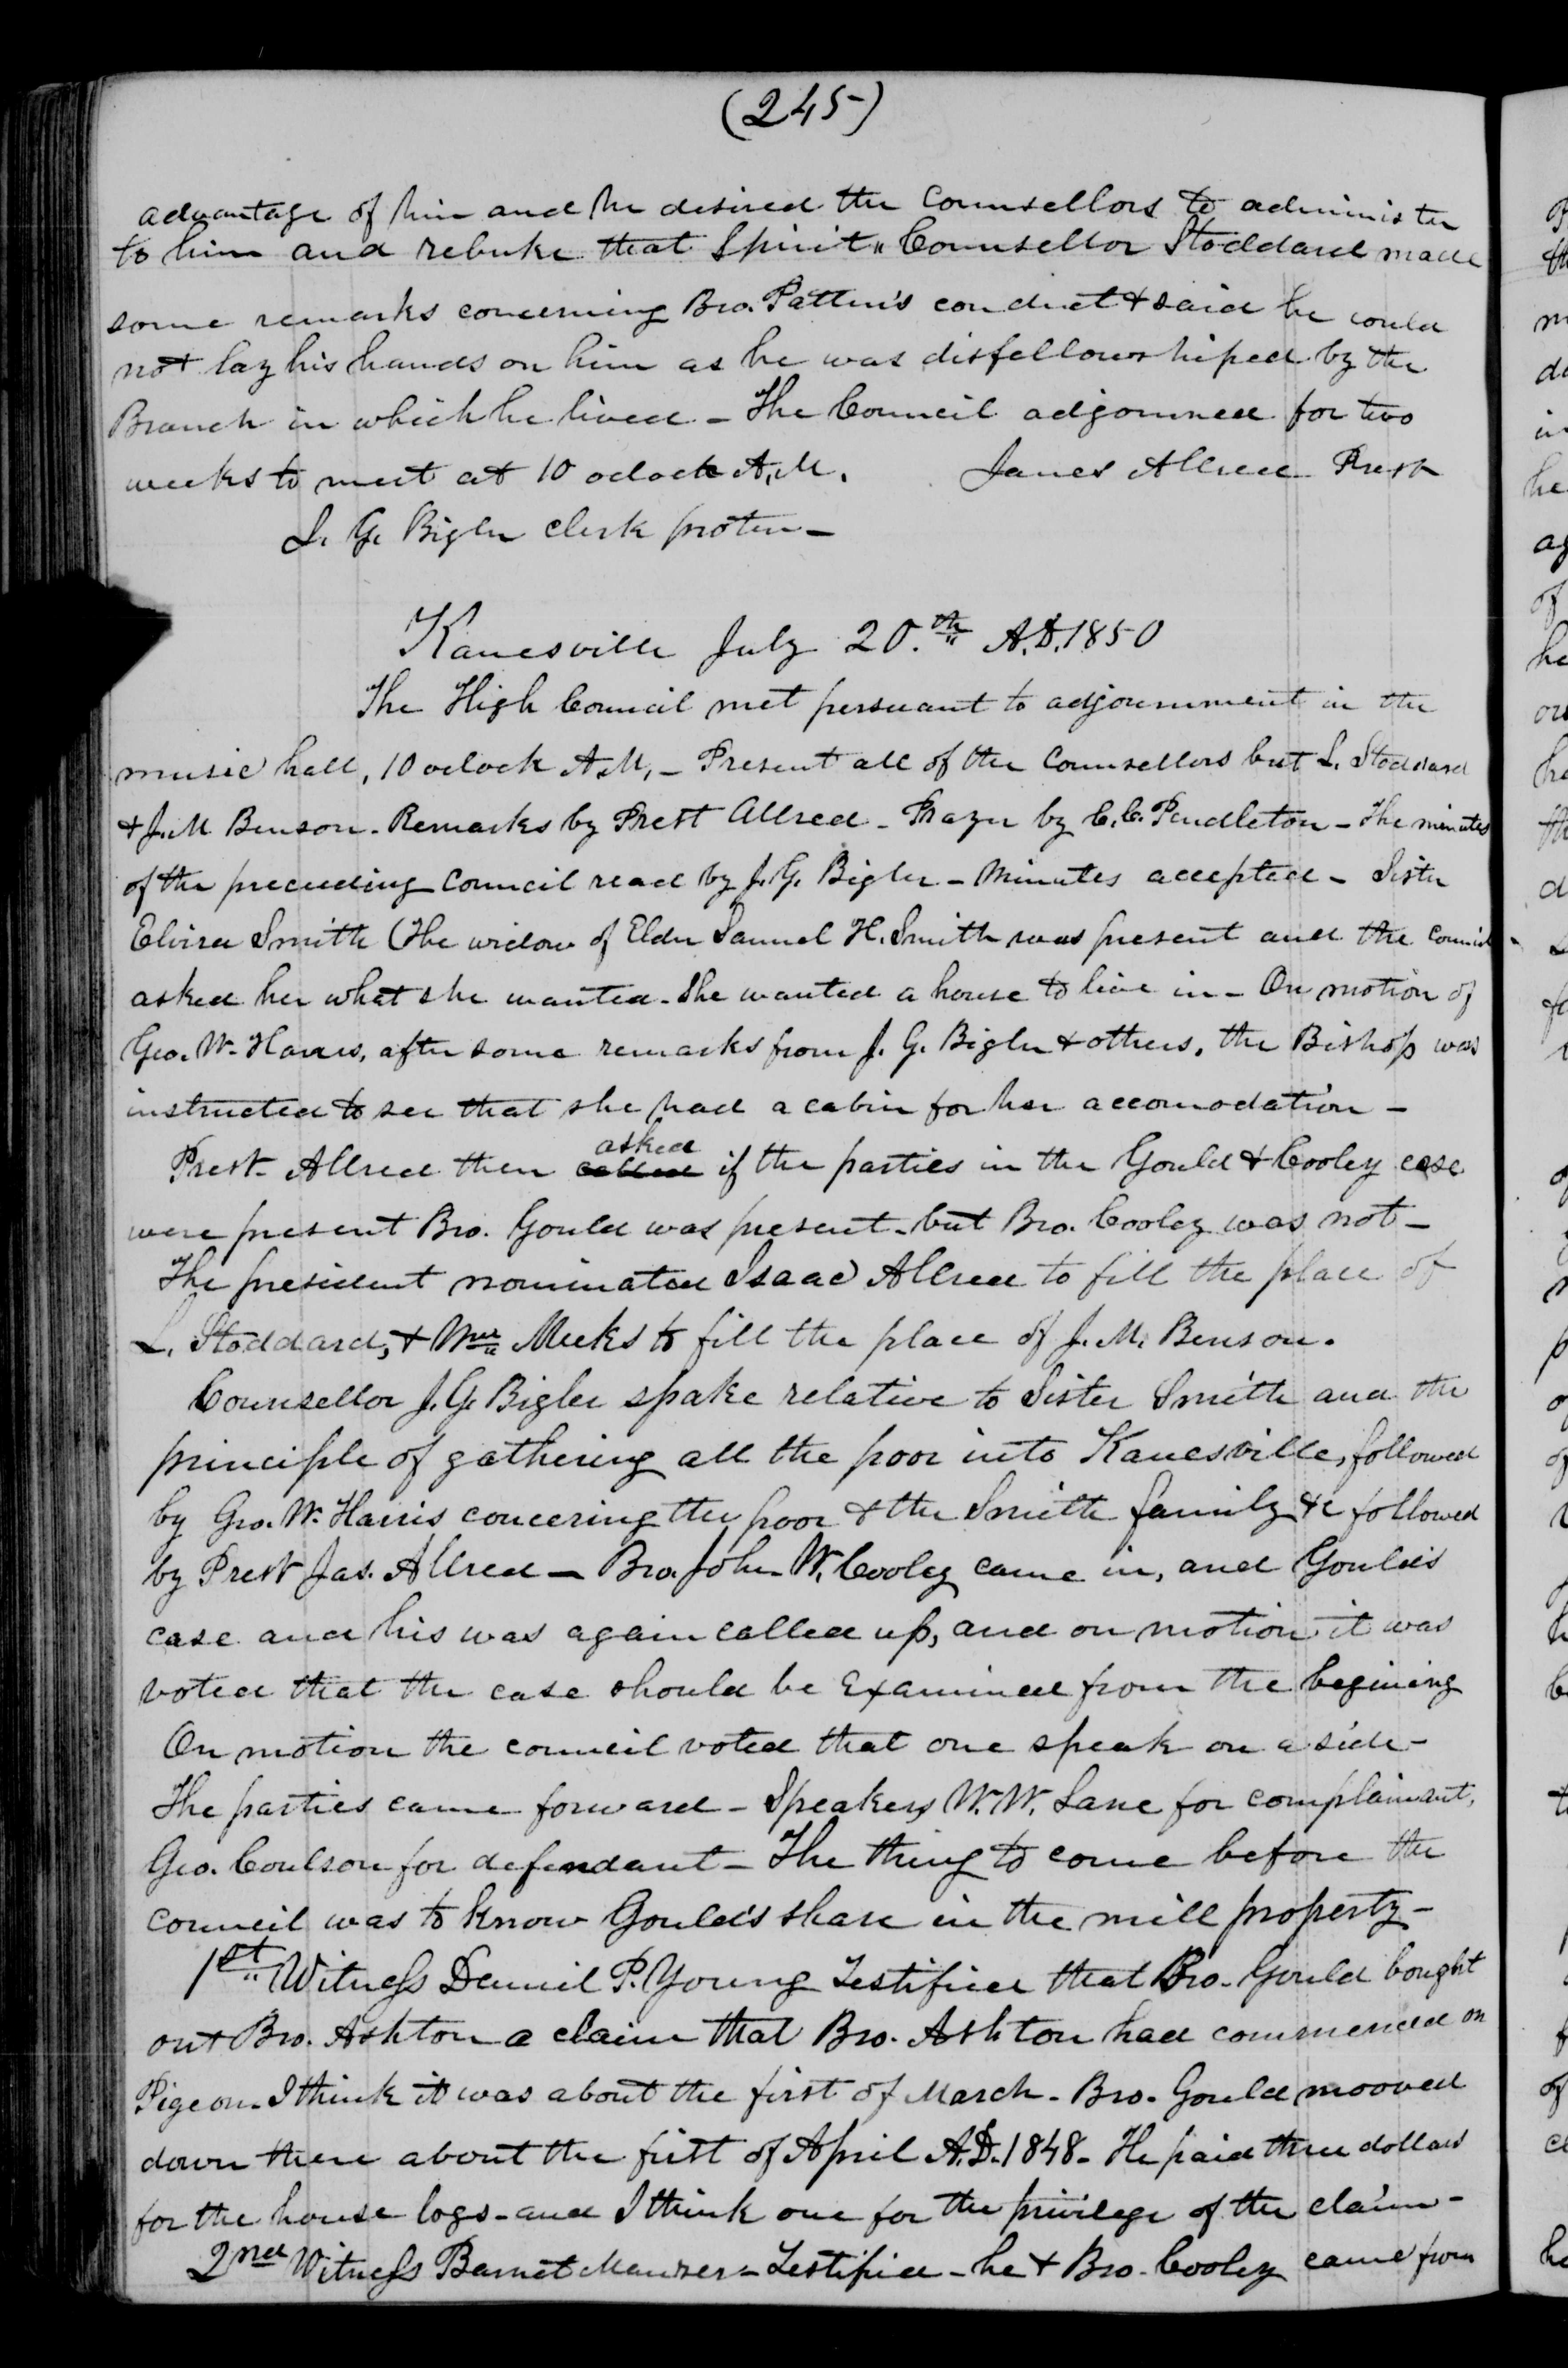 (245)
advantage of him and he desired the Counsellors to administer
to him and rebuke that Spirit " Counsellor Stoddard made
some remarks concerning Bro. Patten's conduct & said he could
not lay his hands on him as he was disfellowshiped by the
Branch in which he lived - The Council adjourned for two
weeks to meet at 10 oclock A.M. James Allred Prest
J. G. Bigler clerk protem -
Kanesville July 20.th A.D. 1850
The High Council met persuant to adjournment in the
music hall, 10 oclock A.M. - Present all of the Counsellors but L. Stoddard
& J. M Benson - Remarks by Prest Allred - Prayer by C. C. Pendleton - The minutes
of the preceeding Council read by J. G. Bigler - Minutes accepted - Sister
Elvira Smith (The widow of Elder Samuel H. Smith was present and the Council
asked her what she wanted - She wanted a house to live in - On motion of
Geo. W. Harris, after some remarks from J. G. Bigler & others, the Bishop was
instructed to see that she had a cabin for her accomodation -
Prest. Allred then called asked if the parties in the Gould & Cooley case
were present Bro. Gould was present - but Bro. Cooley was not -
The president nominated Isaac Allred to fill the place of
L. Stoddard, & Wm Meeks to fill the place of J. M. Benson.
Counsellor J. G. Bigler spake relative to Sister Smith and the
principle of gathering all the poor into Kanesville, followed
by Geo. W. Harris concering the poor & the Smith family &c followed
by Prest Jas. Allred - Bro. John W. Cooley came in, and Gould's
case and his was again called up, and on motion it was
voted that the case should be Examined from the begining
On motion the council voted that one speak on a side -
The parties came forward - Speakers W. W. Lane for complainant,
Geo. Coulson for defendant - The thing to come before the
council was to know Gould's share in the mill property -
1st Witness Daniel P. Young Testified that Bro. Gould bought
out Bro. Ashton a claim that Bro. Ashton had commenced on
Pigeon - I think it was about the first of March - Bro. Gould mooved
down there about the first of April A.D. 1848 - He paid three dollars
for the house logs - and I think one for the privilege of the claim -
2nd Witness Barnet - Testified - he & Bro. Cooley came from